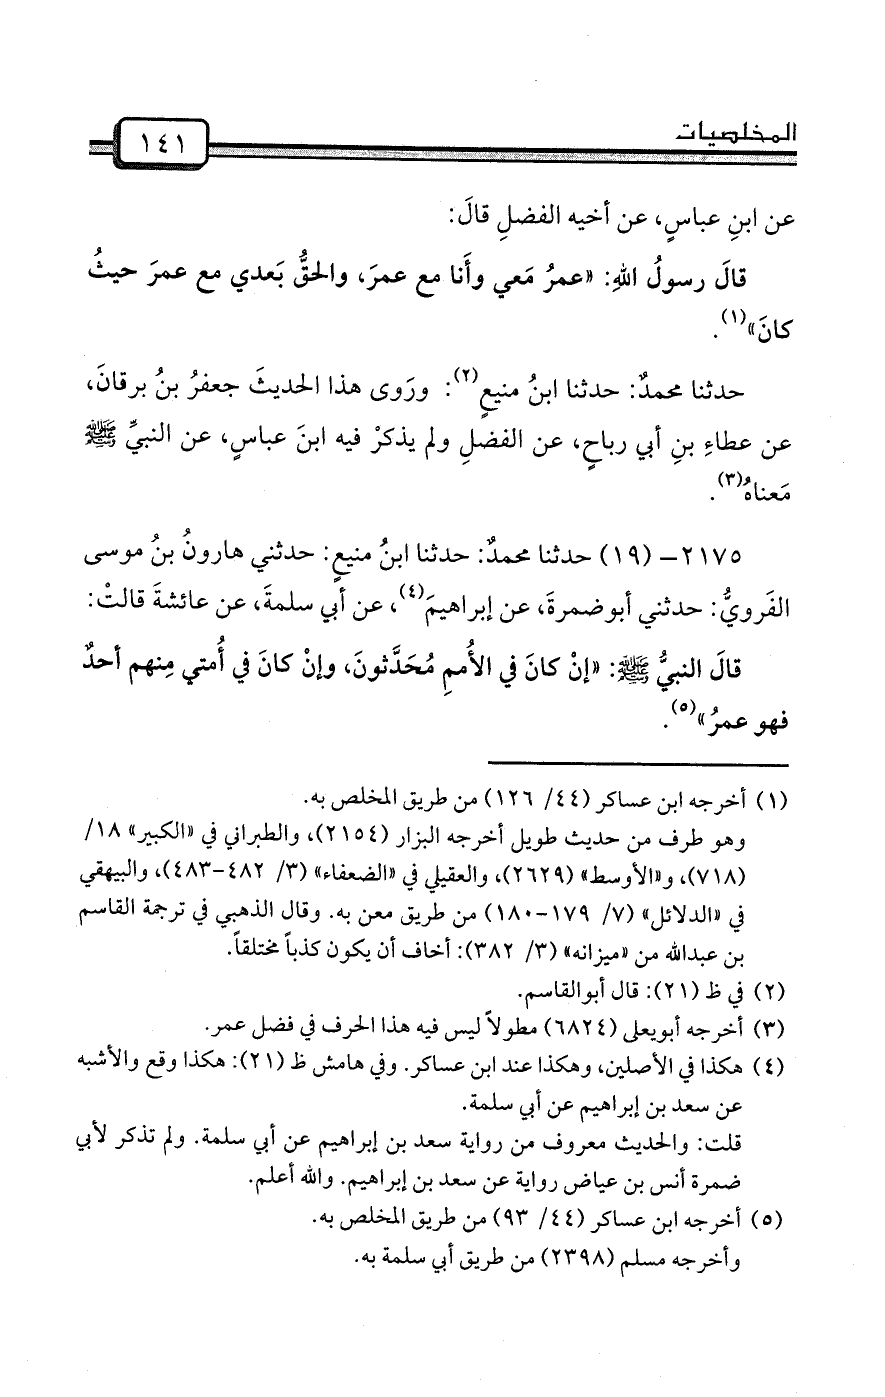 المخلصيات
١٤١
عن ابنِ عباسٍ، عن أخيه الفضلِ قالَ:
قالَ رسولُ اللهِ: «عمرُ مَعي وأَنا مع عمرَ، والحقُّ بَعدي مع عمرَ حيثُ
كانَ»(١).
حدثنا محمدٌ: حدثنا ابنُ منيعٍ(٢): ورَوى هذا الحديثَ جعفرُ بنُ برقانَ،
عن عطاءِ بنِ أبي رباحٍ، عن الفضلِ ولم يذكرْ فيه ابنَ عباسٍ، عن النبيِّ ﷺ
مَعناهُ(٣).
٢١٧٥- (١٩) حدثنا محمدٌ: حدثنا ابنُ منيعٍ: حدثني هارونُ بنُ موسى
الفَرويُّ: حدثني أبوضمرةَ، عن إبراهيمَ(٤)، عن أبي سلمةَ، عن عائشةَ قالتْ:
قالَ النبيُّ ﷺ: «إنْ كانَ في الأُممِ مُحَدَّثونَ، وإنْ كانَ في أُمتي مِنهم أحدٌ
فهو عمرُ»(٥).
(١) أخرجه ابن عساكر (٤٤/ ١٢٦) من طريق المخلص به.
وهو طرف من حديث طويل أخرجه البزار (٢١٥٤)، والطبراني في «الكبير» ١٨/
(٧١٨)، و«الأوسط» (٢٦٢٩)، والعقيلي في «الضعفاء» (٣/ ٤٨٢-٤٨٣)، والبيهقي
في «الدلائل» (٧/ ١٧٩-١٨٠) من طريق معن به. وقال الذهبي في ترجمة القاسم
بن عبدالله من «ميزانه» (٣/ ٣٨٢): أخاف أن يكون كذباً مختلقاً.
(٢) في ظ (٢١): قال أبوالقاسم.
(٣) أخرجه أبويعلى (٦٨٢٤) مطولاً ليس فيه هذا الحرف في فضل عمر.
(٤) هكذا في الأصلين، وهكذا عند ابن عساكر. وفي هامش ظ (٢١): هكذا وقع والأشبه
عن سعد بن إبراهيم عن أبي سلمة.
قلت: والحديث معروف من رواية سعد بن إبراهيم عن أبي سلمة. ولم تذكر لأبي
ضمرة أنس بن عياض رواية عن سعد بن إبراهيم. والله أعلم.
(٥) أخرجه ابن عساكر (٤٤/ ٩٣) من طريق المخلص به.
وأخرجه مسلم (٢٣٩٨) من طريق أبي سلمة به.